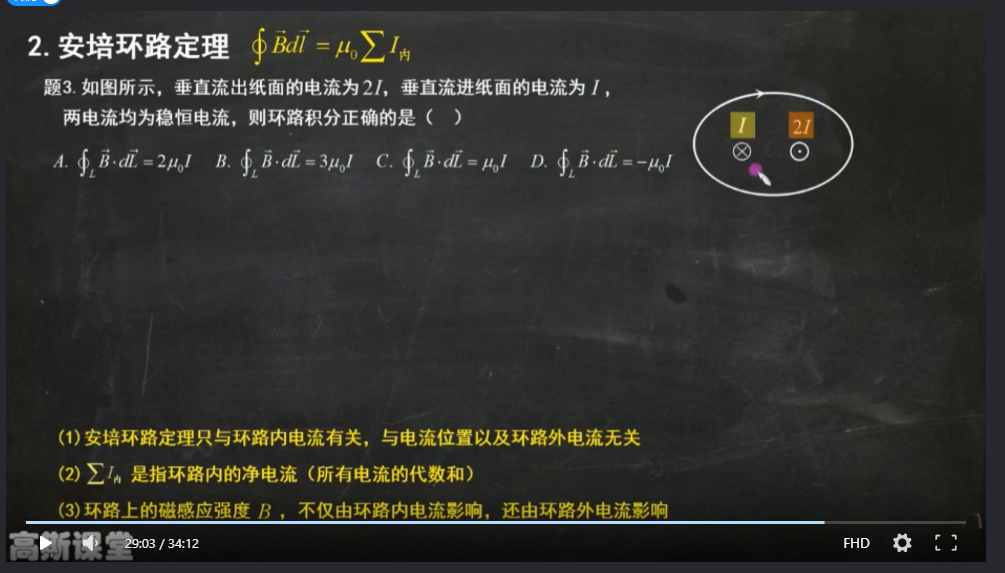 2. 安培环路定理 ∮B⃗dl⃗ = μ₀∑I内
题3. 如图所示，垂直流出纸面的电流为2I，垂直流进纸面的电流为 I ，
两电流均为稳恒电流，则环路积分正确的是（ ）
A. ∮L B⃗·dL⃗ = 2μ₀I B. ∮L B⃗·dL⃗ = 3μ₀I C. ∮L B⃗·dL⃗ = μ₀I D. ∮L B⃗·dL⃗ = −μ₀I
I 2I
(1) 安培环路定理只与环路内电流有关，与电流位置以及环路外电流无关
(2) ∑I内 是指环路内的净电流（所有电流的代数和）
(3) 环路上的磁感应强度 B ，不仅由环路内电流影响，还由环路外电流影响
高斯课堂
29:03 / 34:12 FHD